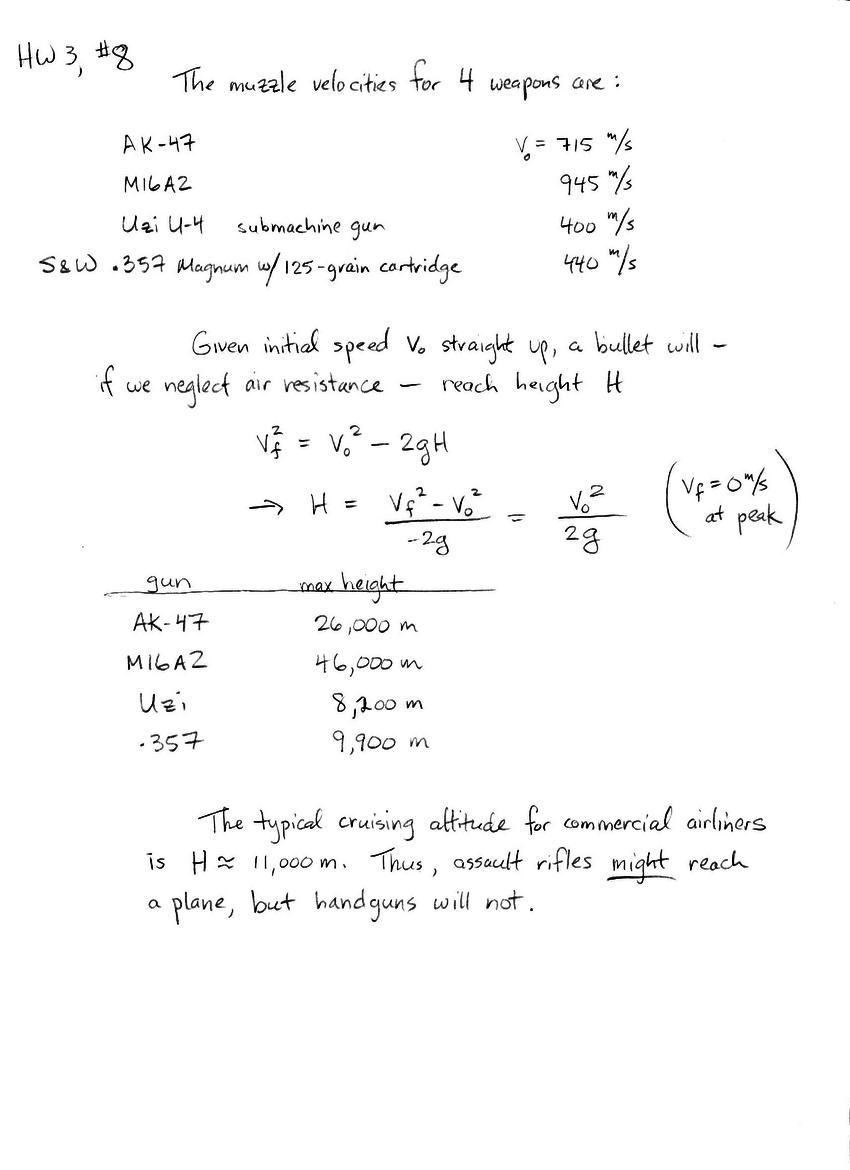 HW 3, #8
The muzzle velocities for 4 weapons are :
AK-47 V₀ = 715 m/s
M16A2 945 m/s
Uzi U-4 submachine gun 400 m/s
S&W .357 Magnum w/ 125-grain cartridge 440 m/s
Given initial speed V₀ straight up, a bullet will –
if we neglect air resistance – reach height H
V_f² = V₀² - 2gH
→ H = (V_f² - V₀²)/(-2g) = V₀²/(2g) (V_f = 0 m/s at peak)
gun max height
AK-47 26,000 m
M16A2 46,000 m
Uzi 8,200 m
.357 9,900 m
The typical cruising altitude for commercial airliners
is H ≈ 11,000 m. Thus, assault rifles might reach
a plane, but handguns will not.